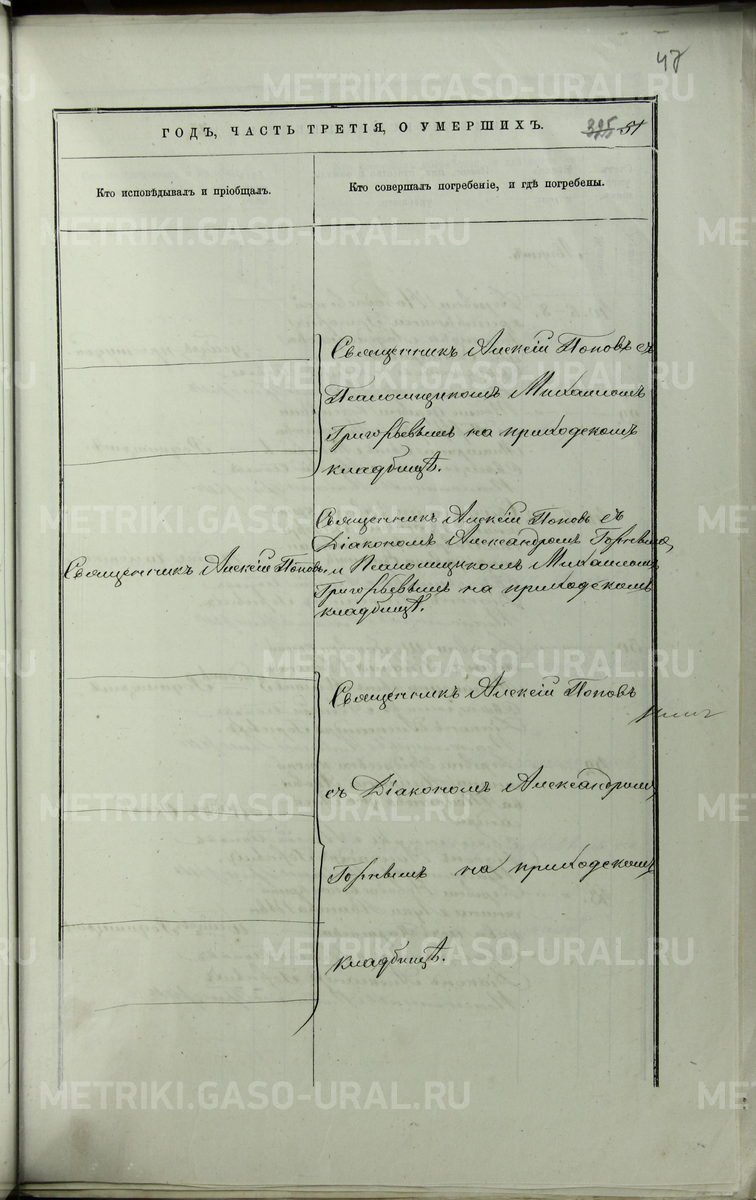 47
ГОДЪ, ЧАСТЬ ТРЕТІЯ, О УМЕРШИХЪ.
395 51
Кто исповѣдывалъ и пріобщалъ.
Кто совершалъ погребеніе, и гдѣ погребены.
Священникъ Алексій Поповъ съ
Псаломщикомъ Михаиломъ
Григорьевымъ на приходскомъ
кладбищѣ.
Священникъ Алексій Поповъ
Священникъ Алексій Поповъ съ
Діакономъ Александромъ
и Псаломщикомъ Михаиломъ
Григорьевымъ на приходскомъ
кладбищѣ.
Священникъ Алексій Поповъ
съ Діакономъ Александромъ
на приходскомъ
кладбищѣ.
METRIKI.GASO-URAL.RU